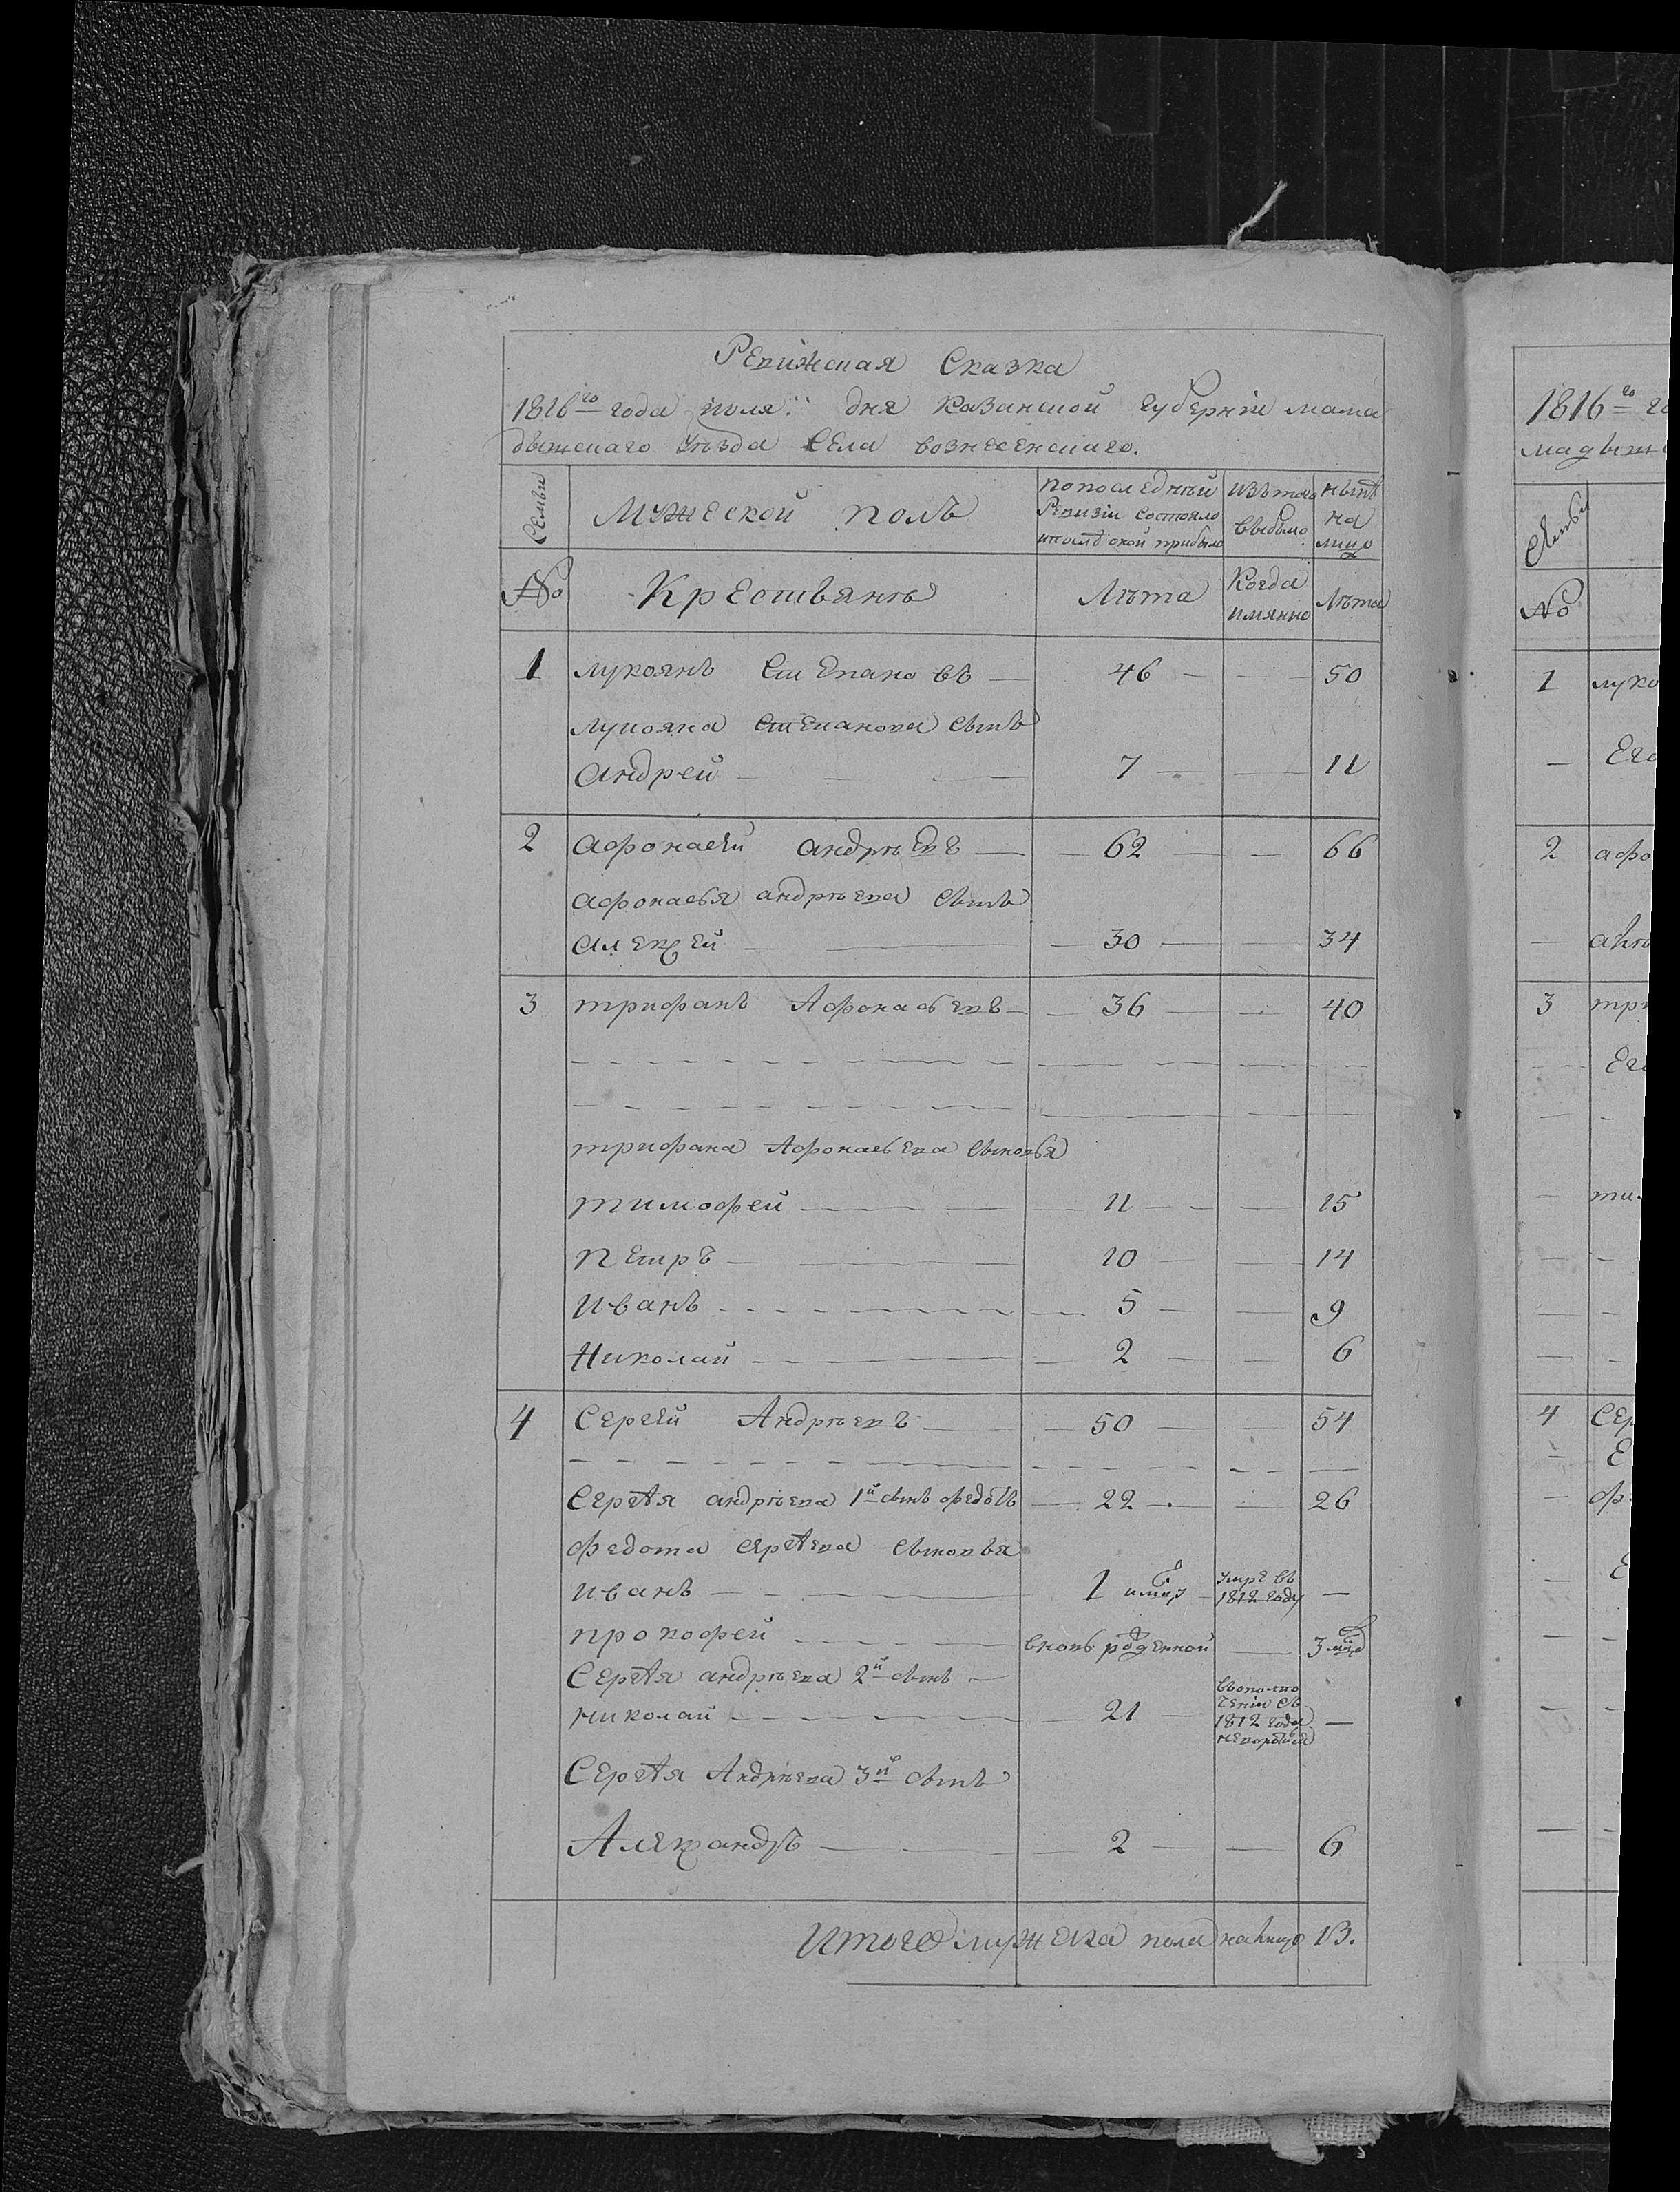 Ревижская Сказка
1816го года июля " дня Казанской губернiи мама
дышскаго уѣзда села вознесенскаго.
Семьи
Мужеской полъ
по последнѣй Ревизiи состояло и после оной прибыло
Изъ того выбыло
Ныне на лицо
№ Крестьянъ Лѣта Когда имянно Лѣта
1 лукоянъ Степановъ — 46 — — 50
лукояна степанова сынъ
андрей — 7 — — 11
2 афонасей андрѣевъ — 62 — — 66
афонасья андрѣева сынъ
алексей — 30 — — 34
3 трифанъ Афонасьевъ — 36 — — 40
трифана Афонасьева сыновья
тимофей — 11 — — 15
петръ — 10 — — 14
иванъ — 5 — — 9
Николай — 2 — — 6
4 Сергей Андрѣевъ — 50 — — 54
Сергея андрѣева 1й сынъ федотъ — 22 — — 26
федота сергеева сыновья
иванъ — 1 умре въ 1812 году —
прокофей — вновь рожденной — 3
Сергея андрѣева 2й сынъ —
николай — 21 — въ ополчении съ 1812 года —
Сергея Андрѣева 3й сынъ
Александръ — 2 — — 6
Итого мужеска пола на лицо 13.
1816го го
мадыш
Семьи
№
1 луко
— Его
2 афо
— 
3 три
— Его
— ти
4 Сер
— Е
— ф
— Е